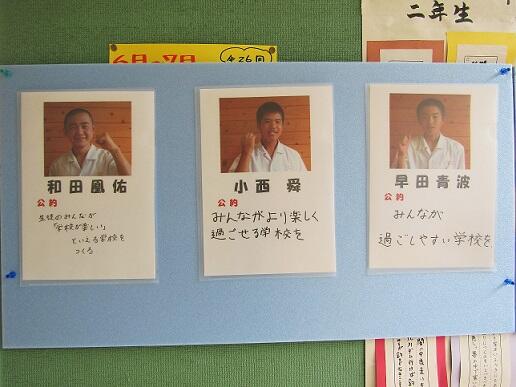 二年生
6月・7月
和田凰佑
公約
生徒のみんなが
「学校が楽しい」
といえる学校を
つくる
小西舜
公約
みんながより楽しく
過ごせる学校を
早田青波
公約
みんなが
過ごしやすい学校を